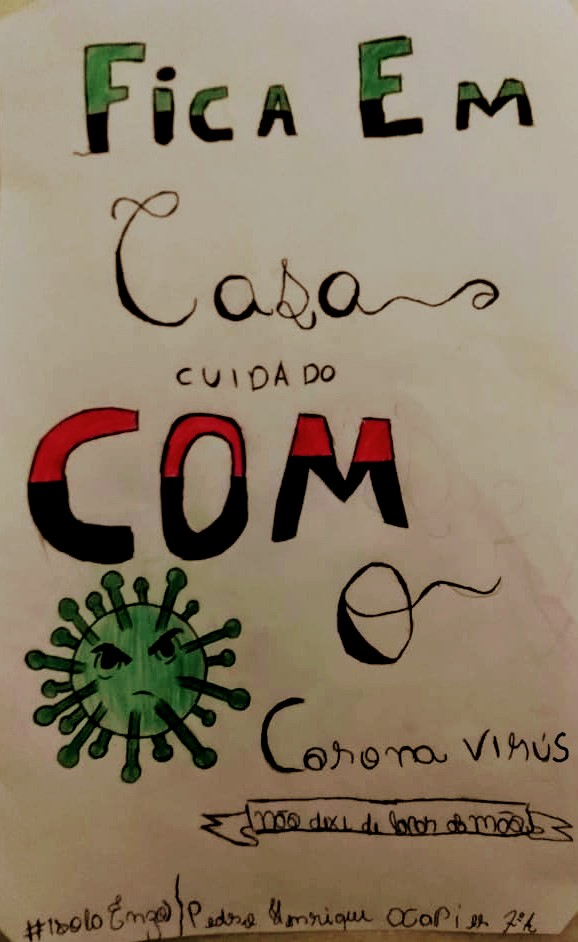 FICA EM
Casa
CUIDADO
COM
O
Corona VIRÚS
não dexe de lavar as mãos
Pedro Henrique 7º A